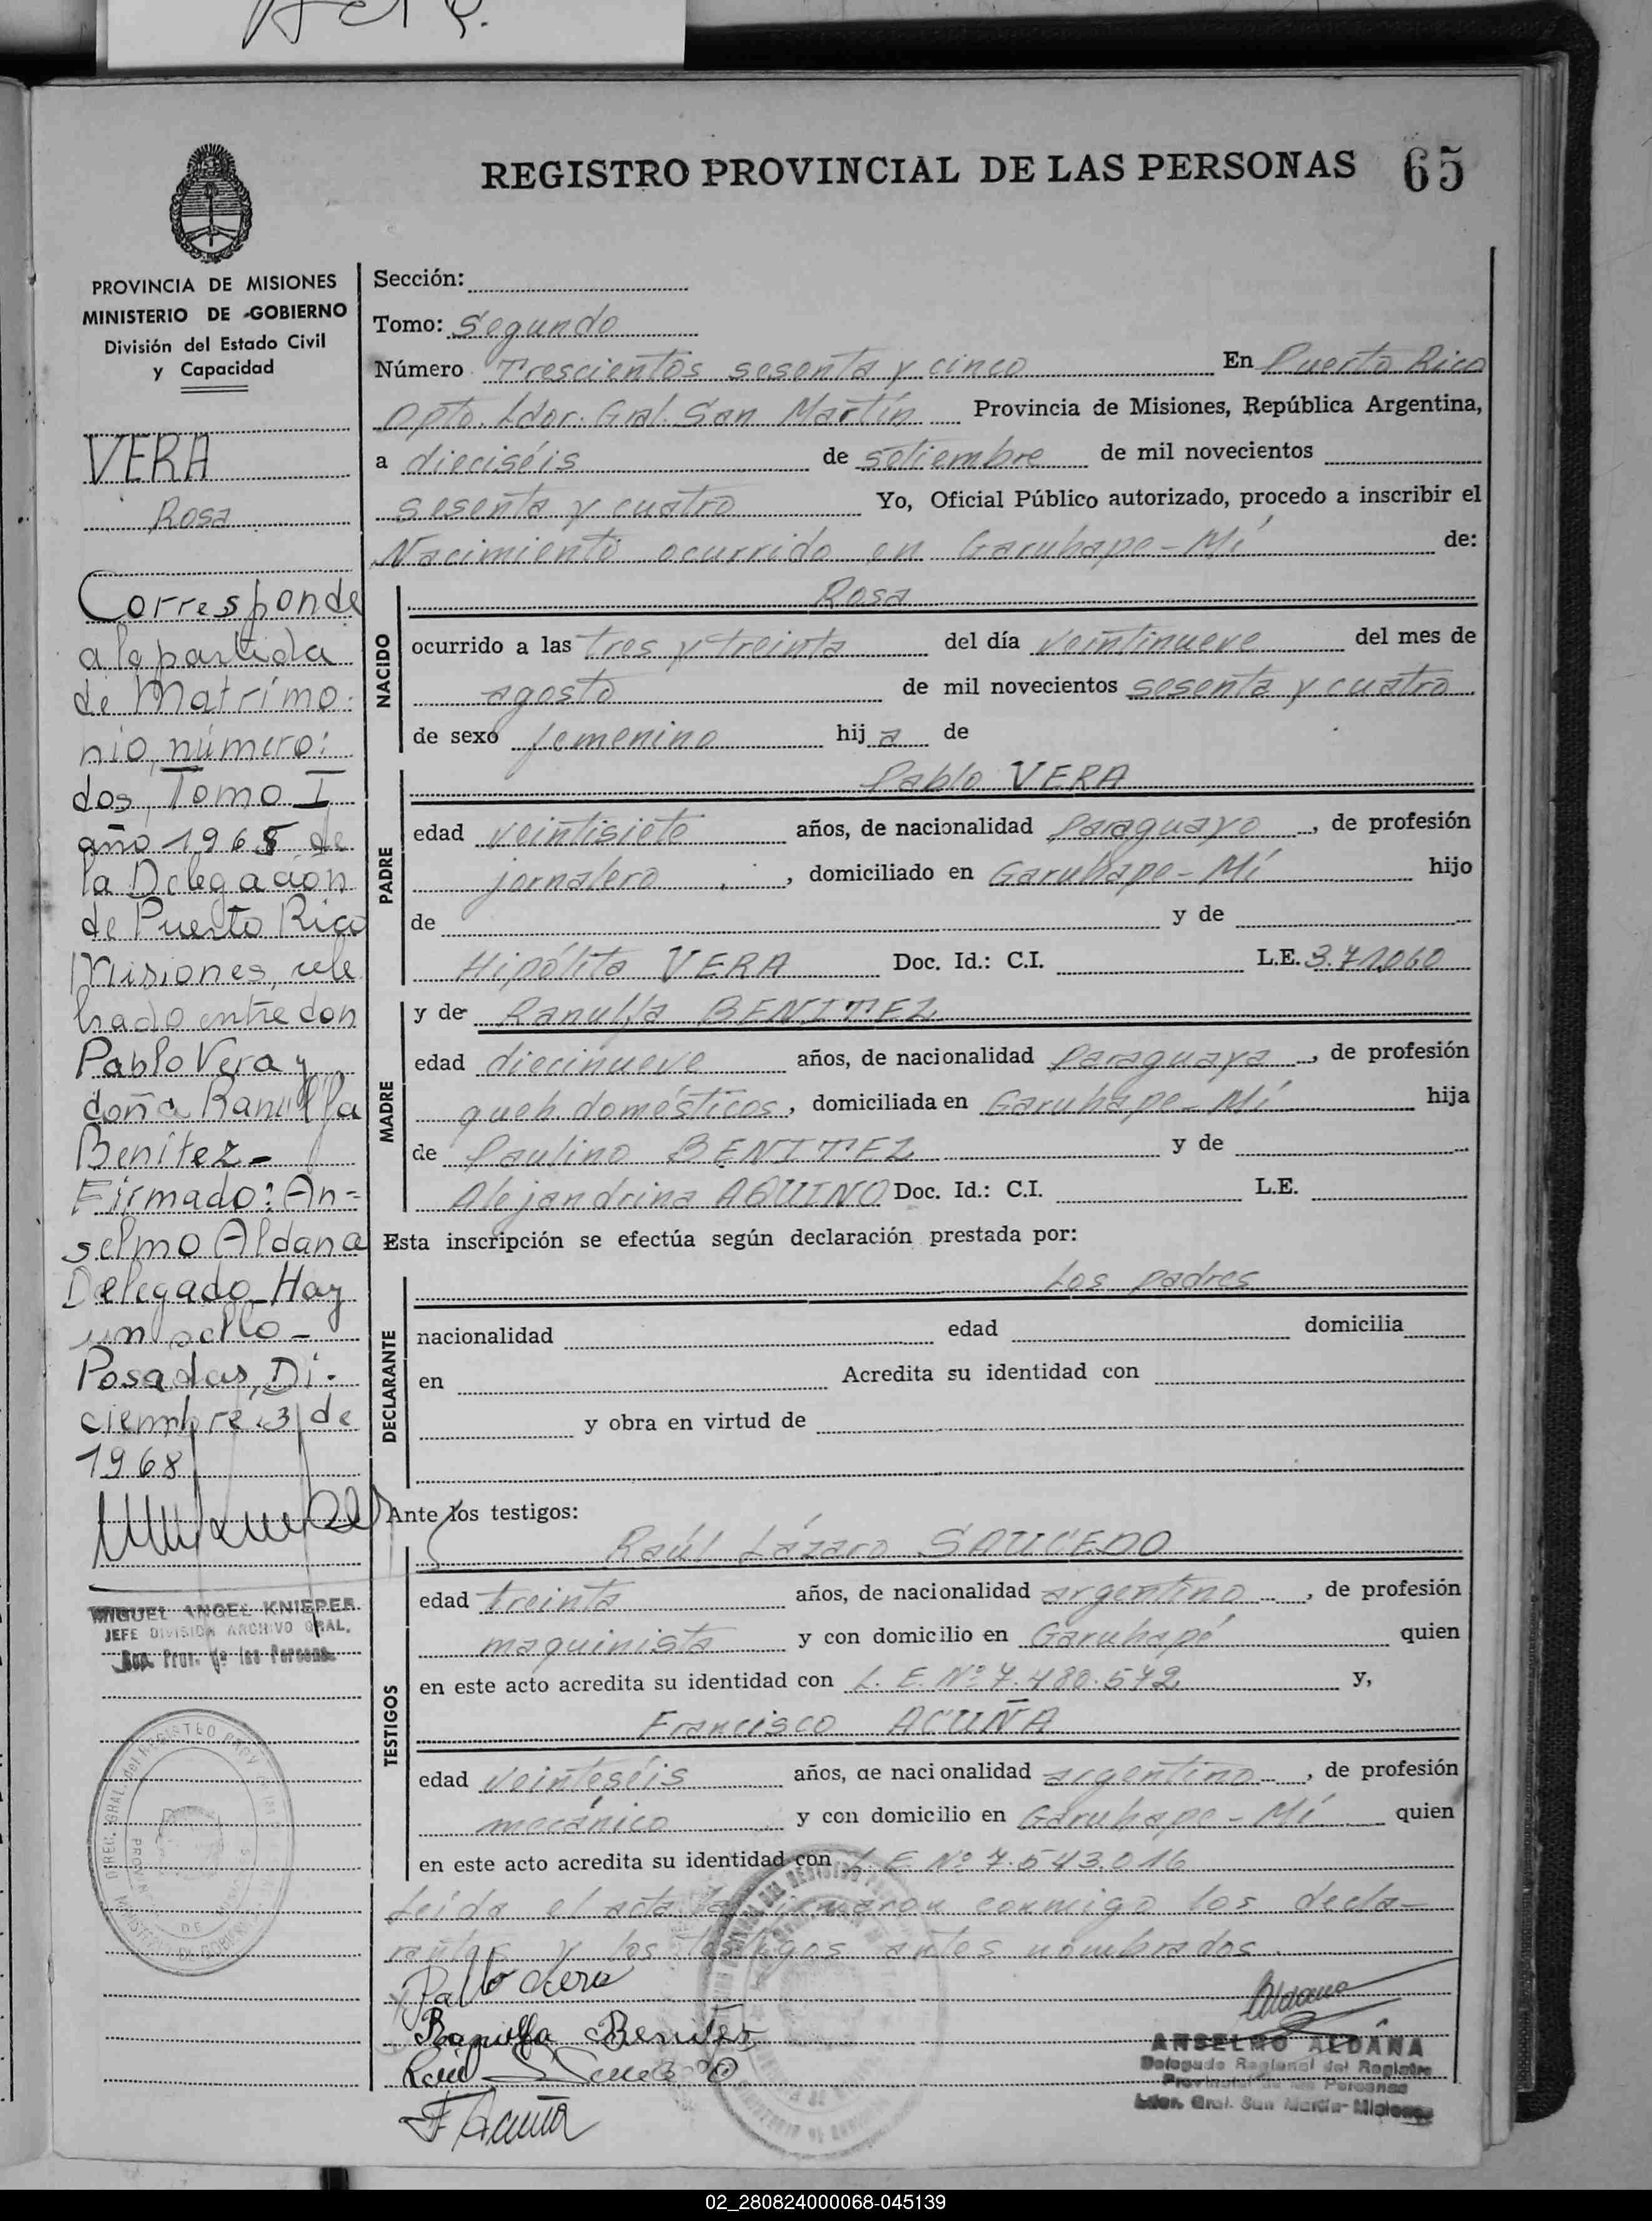 REGISTRO PROVINCIAL DE LAS PERSONAS 65
PROVINCIA DE MISIONES
MINISTERIO DE GOBIERNO
División del Estado Civil
y Capacidad
VERA
Rosa
Corresponde
a la partida
de Matrimo-
nio, número:
dos, Tomo I
año 1965 de
la Delegación
de Puerto Rico
Misiones, cele
brado entre don
Pablo Vera y
doña Ranulfa
Benítez-
Firmado: An-
selmo Aldana
Delegado_Hay
un sello-
Posadas, Di-
ciembre 3 de
1968
MIGUEL ANGEL KNIEPER
JEFE DIVISION ARCHIVO GRAL.
Sección:
Tomo: Segundo
Número Trescientos sesenta y cinco En Puerto Rico
Dpto. Ldor. Gral. San Martín Provincia de Misiones, República Argentina,
a dieciséis de setiembre de mil novecientos
sesenta y cuatro Yo, Oficial Público autorizado, procedo a inscribir el
Nacimiento ocurrido en Garuhape-Mí de:
NACIDO
Rosa
ocurrido a las tres y treinta del día veintinueve del mes de
agosto de mil novecientos sesenta y cuatro
de sexo femenino hij a de
PADRE
Pablo VERA
edad veintisiete años, de nacionalidad Paraguayo, de profesión
jornalero, domiciliado en Garuhape-Mí hijo
de y de
Hipólita VERA Doc. Id.: C.I. L.E. 3.71.060
MADRE
y de Ranulfa BENITEZ
edad diecinueve años, de nacionalidad Paraguaya, de profesión
queh. domésticos, domiciliada en Garuhape-Mí hija
de Paulino BENITEZ y de
Alejandrina AQUINO Doc. Id.: C.I. L.E.
Esta inscripción se efectúa según declaración prestada por:
DECLARANTE
Los padres
nacionalidad edad domicilia
en Acredita su identidad con
y obra en virtud de
Ante los testigos:
TESTIGOS
Raúl Lázaro SAUCEDO
edad treinta años, de nacionalidad argentino, de profesión
maquinista y con domicilio en Garuhapé quien
en este acto acredita su identidad con L.E. Nº 7.480.572 y,
Francisco ACUÑA
edad veinteséis años, de nacionalidad argentino, de profesión
mecánico y con domicilio en Garuhape-Mí quien
en este acto acredita su identidad con L.E. Nº 7.543.016
Leída el acta la firmaron conmigo los decla-
rantes y los testigos antes nombrados.
Pablo Vera
Ranulfa Benitez
Raul Saucedo
F Acuña
Aldana
ANSELMO ALDANA
Delegado Regional del Registro
Provincial de las Personas
Ldor. Gral. San Martín-Misiones
02_280824000068-045139